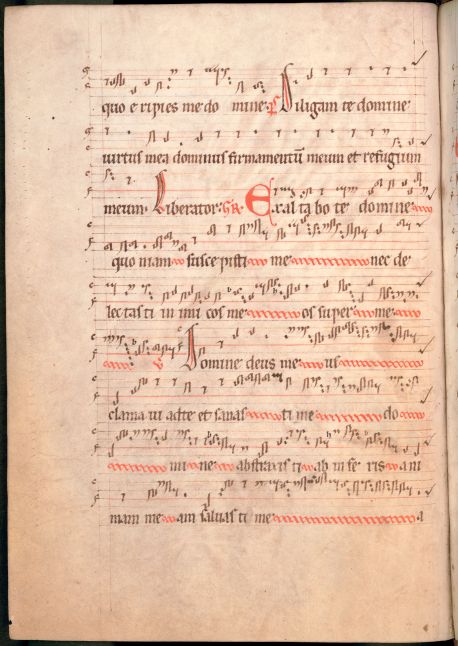 quo e ripies me do mine. Diligam te domine
virtus mea dominus firmamentū meum et refugium
meum. Liberator. GR. Exal ta bo te domine
quo niam susce pisti me nec de
lec tas ti in imi cos me os super me
V Domine deus me us
clama vi ad te et sanas ti me do
mi ne abstraxis ti ab in fe ris ani
mam me am salvas ti me a